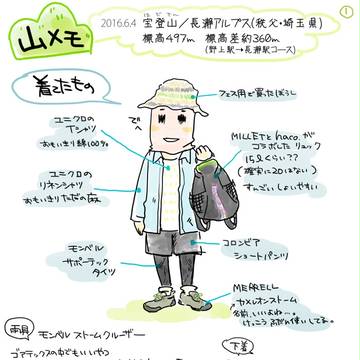 山メモ
2016.6.4 宝登山/長瀞アルプス(秩父・埼玉県)
標高497m 標高差約360m
(野上駅→長瀞駅コース)
①
着てたもの
フェス用で買ったぼうし
ユニクロの
Tシャツ
おもいきり綿100%
MILLETとhaco.が
コラボしたリュック
15ℓくらい??
(確実に20はない)
すんごいしょいやすい
ユニクロの
リネンシャツ
おもいきりただの麻
モンベル
サポーテック
タイツ
コロンビア
ショートパンツ
MERRELL
カメレオンストーム
名前、いいよね…。
けっこうふだん使いしてる。
雨具
モンベル ストームクルーザー
ゴアテックスの中でもいいやつ
下着